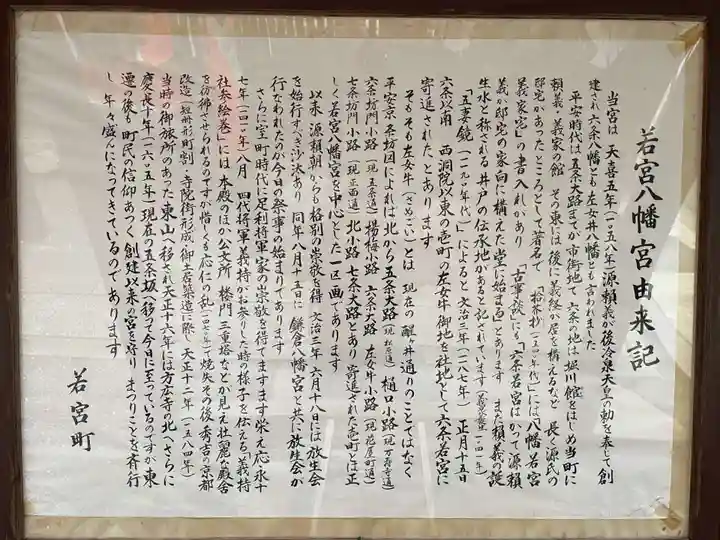 若宮八幡宮由来記
当宮は 天喜五年(一〇五八年)源頼義が後冷泉天皇の勅を奉じて創
建され 六条八幡とも左女井八幡とも言われました
平安時代は 五条大路までが市街地で 六条の地は 堀川館をはじめ当町に
頼義 義家の館 その東には 後に義経が居を構えるなど 長く源氏の
邸宅があったところとして著名で 「拾芥抄」には「八幡若宮
義家宅」の書入れがあり 「古事談」にも「六条若宮はかつて源頼
義が邸宅の家向に構えた堂に始まる」とあります また頼義の誕
生水と称される井戸の伝承地があると記されています
「吾妻鏡」(一一九〇年代)によると 文治三年(一一八七年)正月十五日
六条以南 西洞院以東の壱町の左女牛御地を社地として六条若宮に
寄進された、とあります
そもそも左女牛(さめごい)とは 現在の醒ヶ井通りのことではなく
平安京条坊図によれば 北から五条大路(現松原通)樋口小路(現万寿寺通)
六条坊門小路(現五条通)楊梅小路 六条大路 左女牛小路(現花屋町通)
七条坊門小路(現正面通)北小路 七条大路とあり 寄進された壱町とは正
しく若宮八幡宮を中心とした一区画であります
以来 源頼朝からも格別の崇敬を得 文治三年 六月十八日には 放生会
を始行すべき沙汰あり 同年八月十五日に 鎌倉八幡宮と共に放生会が
行なわれたのが今日の祭事の始まりであります
さらに室町時代に足利将軍家の崇敬を得てますます栄え 応永十
七年(一四一〇年)八月 四代将軍義持がお参りした時の様子を伝える「義持
社参絵巻」には 本殿のほか公文所 楼門 三重塔などが見え 壮麗な殿舎
を彷彿させられるのですが 惜しくも応仁の乱で焼失 その後 秀吉の京都
改造(短冊形町割・寺院街形成・御土居築造)に際し 天正十二年(一五八四年)
当時の御旅所のあった東山へ移され 天正十六年には方広寺の北へ さらに
慶長十年(一六〇五年)現在の五条坂へ移って今日に至っているのですが 東
遷の後も 町民の信仰あつく 創建以来の宮を守り まつりごとを斉行
し 年々盛んになってきているのであります
若宮町